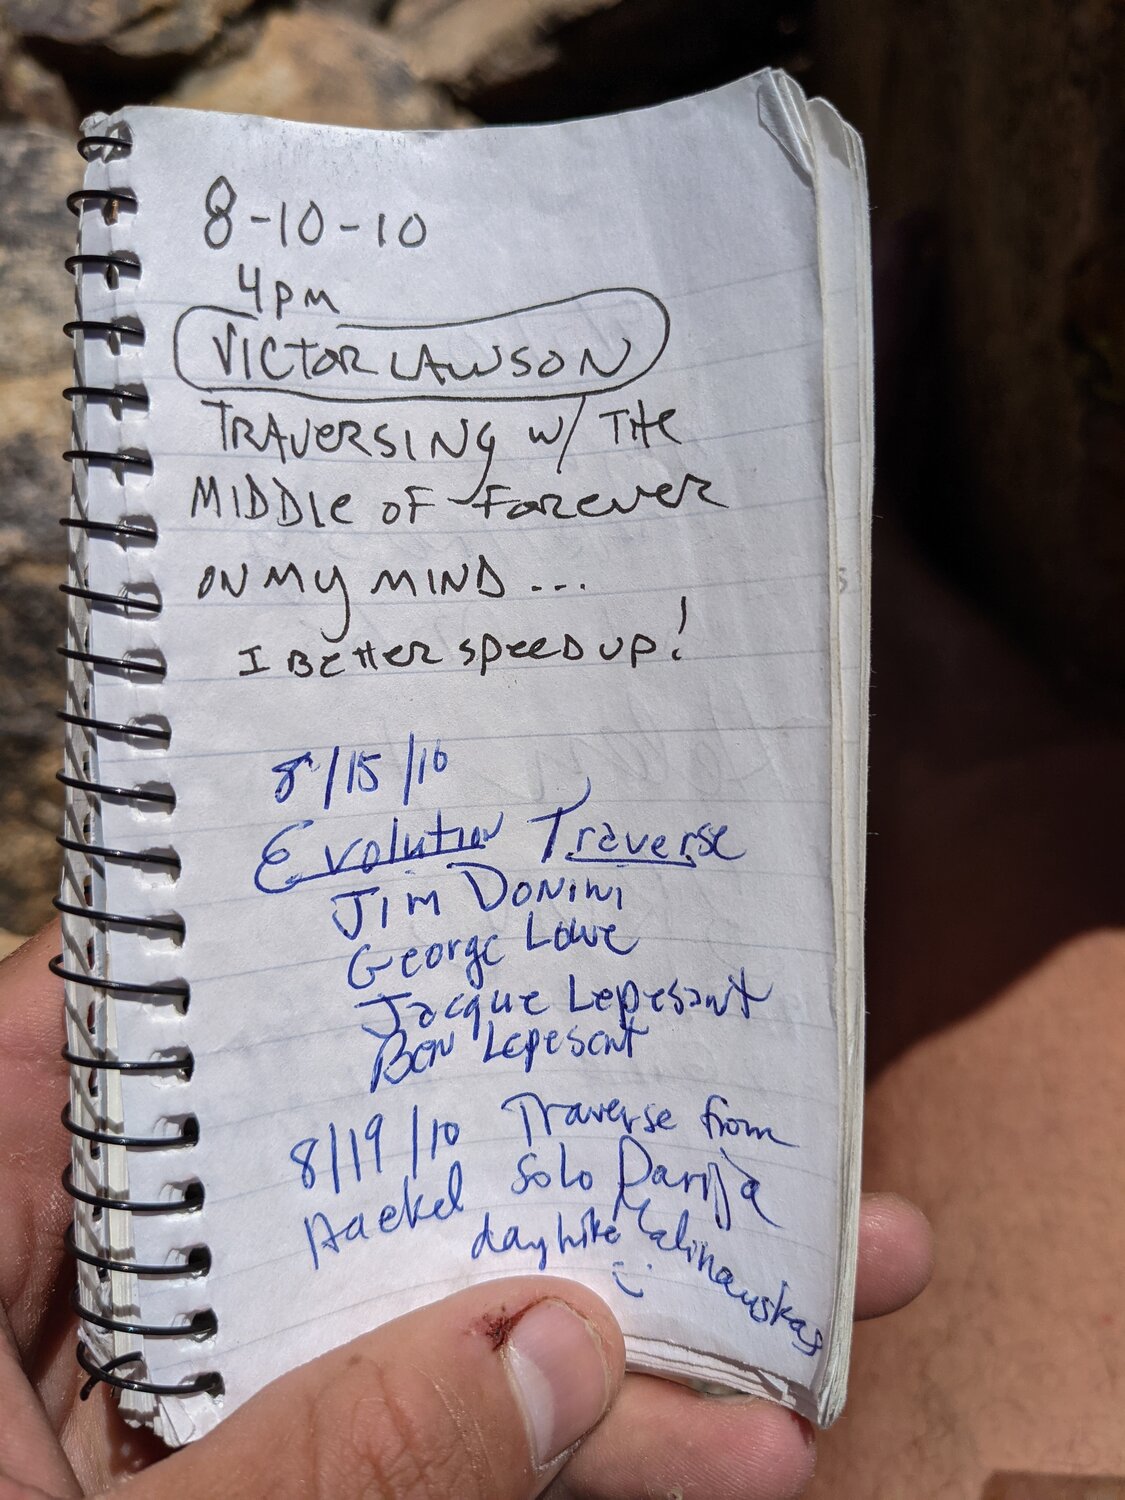 8-10-10
4pm
VICTOR LAWSON
TRAVERSING W/ THE
MIDDLE OF FOREVER
ON MY MIND...
I BETTER SPEED UP!
8/15/10
Evolution Traverse
Jim Donini
George Lowe
Jacque Lepesant
Ben Lepesant
8/19/10 Traverse from
Haekel solo Darija
day hike Malinauskas